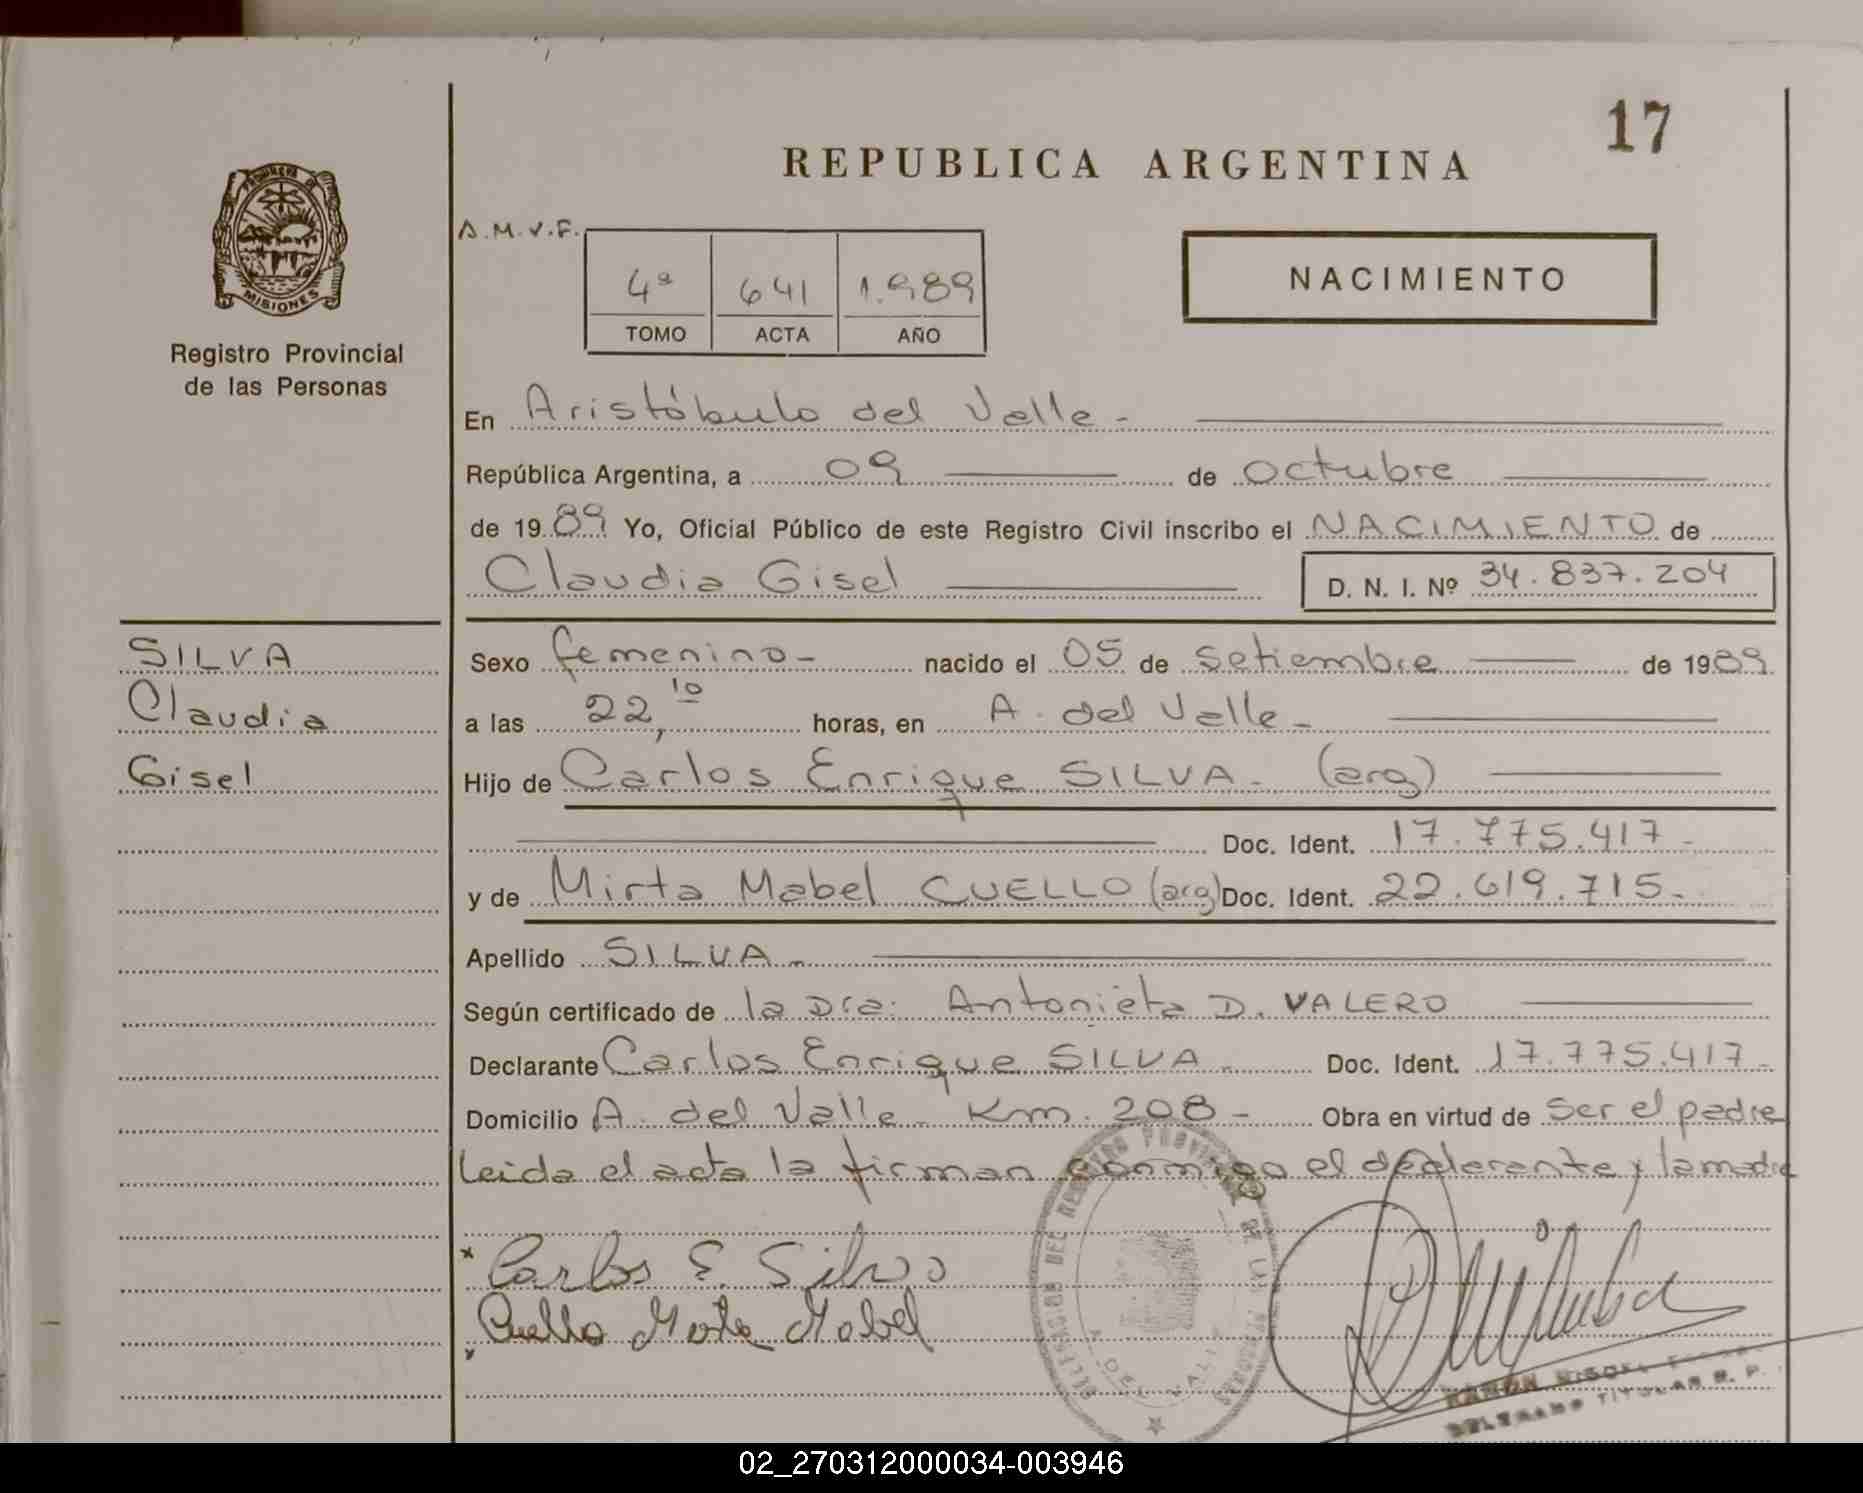 17
REPUBLICA ARGENTINA
PROVINCIA DE
MISIONES
Registro Provincial
de las Personas
A.M.V.F.
4ª 641 1.989
TOMO ACTA AÑO
NACIMIENTO
En Aristóbulo del Valle -
República Argentina, a 09 de octubre
de 1989 Yo, Oficial Público de este Registro Civil inscribo el NACIMIENTO de
Claudia Gisel D. N. I. Nº 34.837.204
SILVA
Claudia
Gisel
Sexo femenino - nacido el 05 de setiembre de 1989
a las 22,10 horas, en A. del Valle -
Hijo de Carlos Enrique SILVA - (arg)
Doc. Ident. 17.775.417 -
y de Mirta Mabel CUELLO (arg) Doc. Ident. 22.619.715 -
Apellido SILVA -
Según certificado de la Dra: Antonieta D. VALERO
Declarante Carlos Enrique SILVA - Doc. Ident. 17.775.417 -
Domicilio A. del Valle - Km. 208 - Obra en virtud de ser el padre
Leida el acta la firman conmigo el declarante y la madre
Carlos E. Silva
Cuello Mirta Mabel
DELEGACION DEL REGISTRO PROVINCIAL DE LAS PERSONAS
A. DEL VALLE
RAMÓN MIGUEL
DELEGADO TITULAR R. P.
02_270312000034-003946